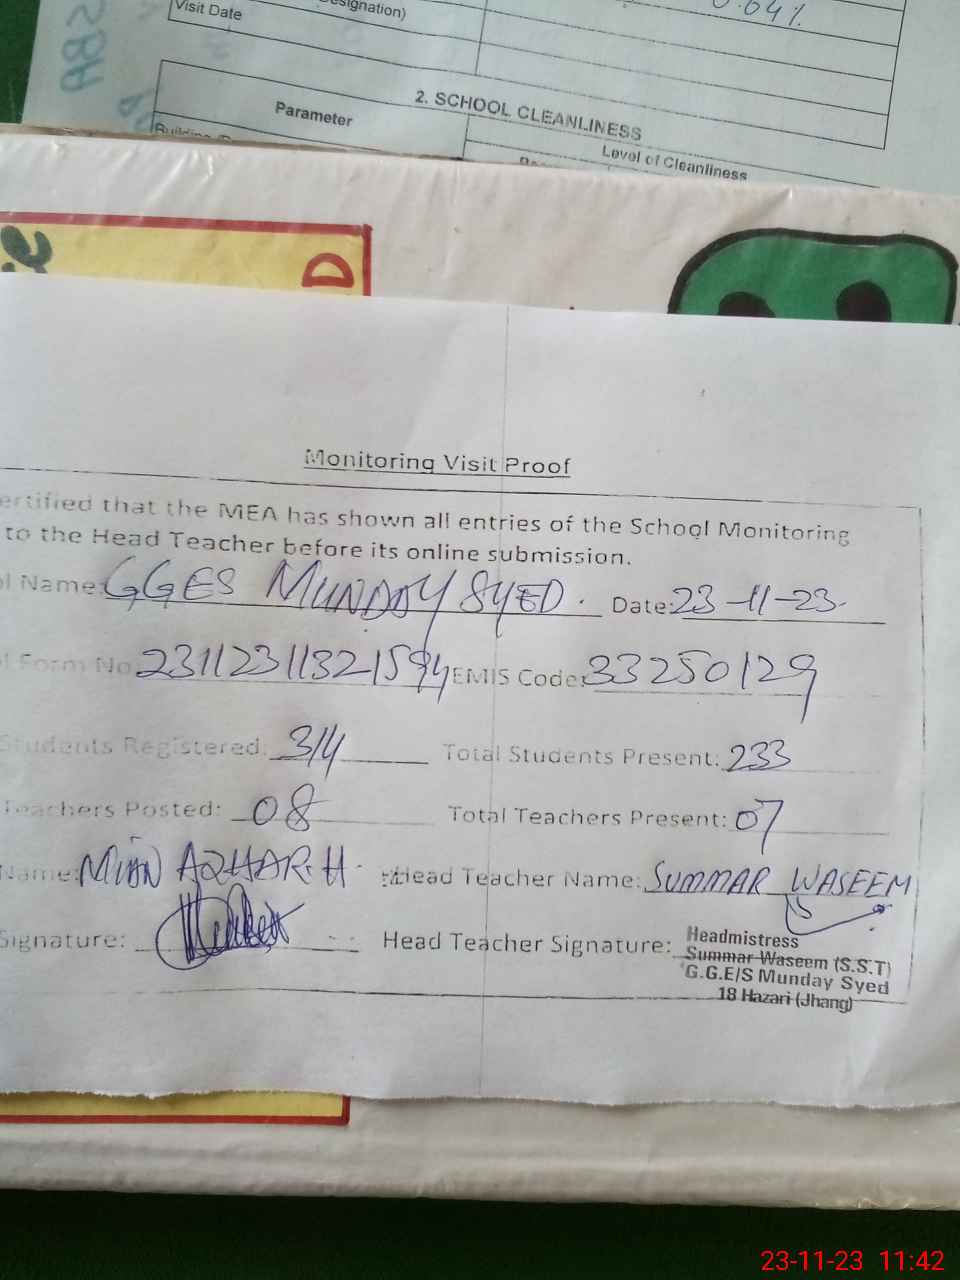 esignation)
0.64%
Visit Date
2. SCHOOL CLEANLINESS
Parameter
Level of Cleanliness
D
Monitoring Visit Proof
ertified that the MEA has shown all entries of the School Monitoring
to the Head Teacher before its online submission.
l Name: GGES MUNDAY SYED. Date: 23-11-23
l Form No 23112311321594 EMIS Code: 33250129
Students Registered: 314 Total Students Present: 233
Teachers Posted: 08 Total Teachers Present: 07
Name: MIAN AZHAR H. Head Teacher Name: SUMMAR WASEEM
Signature: Head Teacher Signature:
Headmistress
Summar Waseem (S.S.T)
G.G.E/S Munday Syed
18 Hazari (Jhang)
23-11-23 11:42